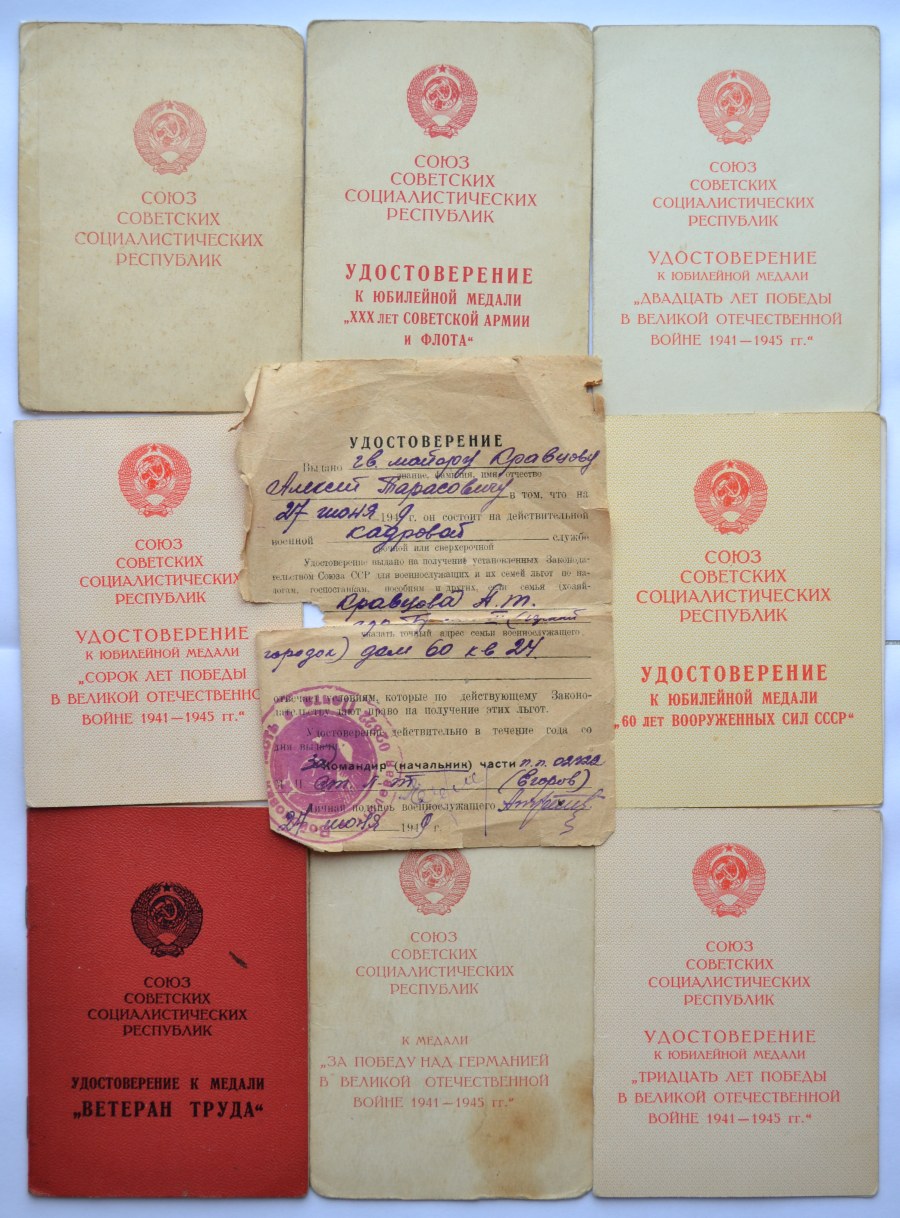 СОЮЗ
СОВЕТСКИХ
СОЦИАЛИСТИЧЕСКИХ
РЕСПУБЛИК
СОЮЗ
СОВЕТСКИХ
СОЦИАЛИСТИЧЕСКИХ
РЕСПУБЛИК
УДОСТОВЕРЕНИЕ
К ЮБИЛЕЙНОЙ МЕДАЛИ
„XXX ЛЕТ СОВЕТСКОЙ АРМИИ
И ФЛОТА“
СОЮЗ
СОВЕТСКИХ
СОЦИАЛИСТИЧЕСКИХ
РЕСПУБЛИК
УДОСТОВЕРЕНИЕ
К ЮБИЛЕЙНОЙ МЕДАЛИ
„ДВАДЦАТЬ ЛЕТ ПОБЕДЫ
В ВЕЛИКОЙ ОТЕЧЕСТВЕННОЙ
ВОЙНЕ 1941—1945 гг.“
СОЮЗ
СОВЕТСКИХ
СОЦИАЛИСТИЧЕСКИХ
РЕСПУБЛИК
УДОСТОВЕРЕНИЕ
К ЮБИЛЕЙНОЙ МЕДАЛИ
„СОРОК ЛЕТ ПОБЕДЫ
В ВЕЛИКОЙ ОТЕЧЕСТВЕННО
ВОЙНЕ 1941—1945 гг.“
УДОСТОВЕРЕНИЕ
Выдано гв. майору Кравцову
звание, фамилия, имя отчество
Алексей Тарасовичу в том, что на
27 июня 1949 г. он состоит на действительной
военной кадровой службе
срочной или сверхсрочной
Удостоверение выдано на получение установленных Законода-
тельством Союза ССР для военнослужащих и их семей льгот по на-
логам, госпоставкам, пособиям и других, для семьи (хозяй-
Кравцова А. Т.
указать точный адрес семьи военнослужащего
городок) дом 60 кв 24
условиям, которые по действующему Законо-
дательству дают право на получение этих льгот.
Удостоверение действительно в течение года со
дня выдачи
За Командир (начальник) части п.п. 02122
ст. л-т (Егоров)
Личная подпись военнослужащего
27 июня 1949 г.
СОЮЗ
СОВЕТСКИХ
СОЦИАЛИСТИЧЕСКИХ
РЕСПУБЛИК
УДОСТОВЕРЕНИЕ
К ЮБИЛЕЙНОЙ МЕДАЛИ
„60 ЛЕТ ВООРУЖЕННЫХ СИЛ СССР“
СОЮЗ
СОВЕТСКИХ
СОЦИАЛИСТИЧЕСКИХ
РЕСПУБЛИК
УДОСТОВЕРЕНИЕ К МЕДАЛИ
„ВЕТЕРАН ТРУДА“
СОЮЗ
СОВЕТСКИХ
СОЦИАЛИСТИЧЕСКИХ
РЕСПУБЛИК
К МЕДАЛИ
„ЗА ПОБЕДУ НАД ГЕРМАНИЕЙ
В ВЕЛИКОЙ ОТЕЧЕСТВЕННОЙ
ВОЙНЕ 1941—1945 гг.“
СОЮЗ
СОВЕТСКИХ
СОЦИАЛИСТИЧЕСКИХ
РЕСПУБЛИК
УДОСТОВЕРЕНИЕ
К ЮБИЛЕЙНОЙ МЕДАЛИ
„ТРИДЦАТЬ ЛЕТ ПОБЕДЫ
В ВЕЛИКОЙ ОТЕЧЕСТВЕННОЙ
ВОЙНЕ 1941—1945 гг.“